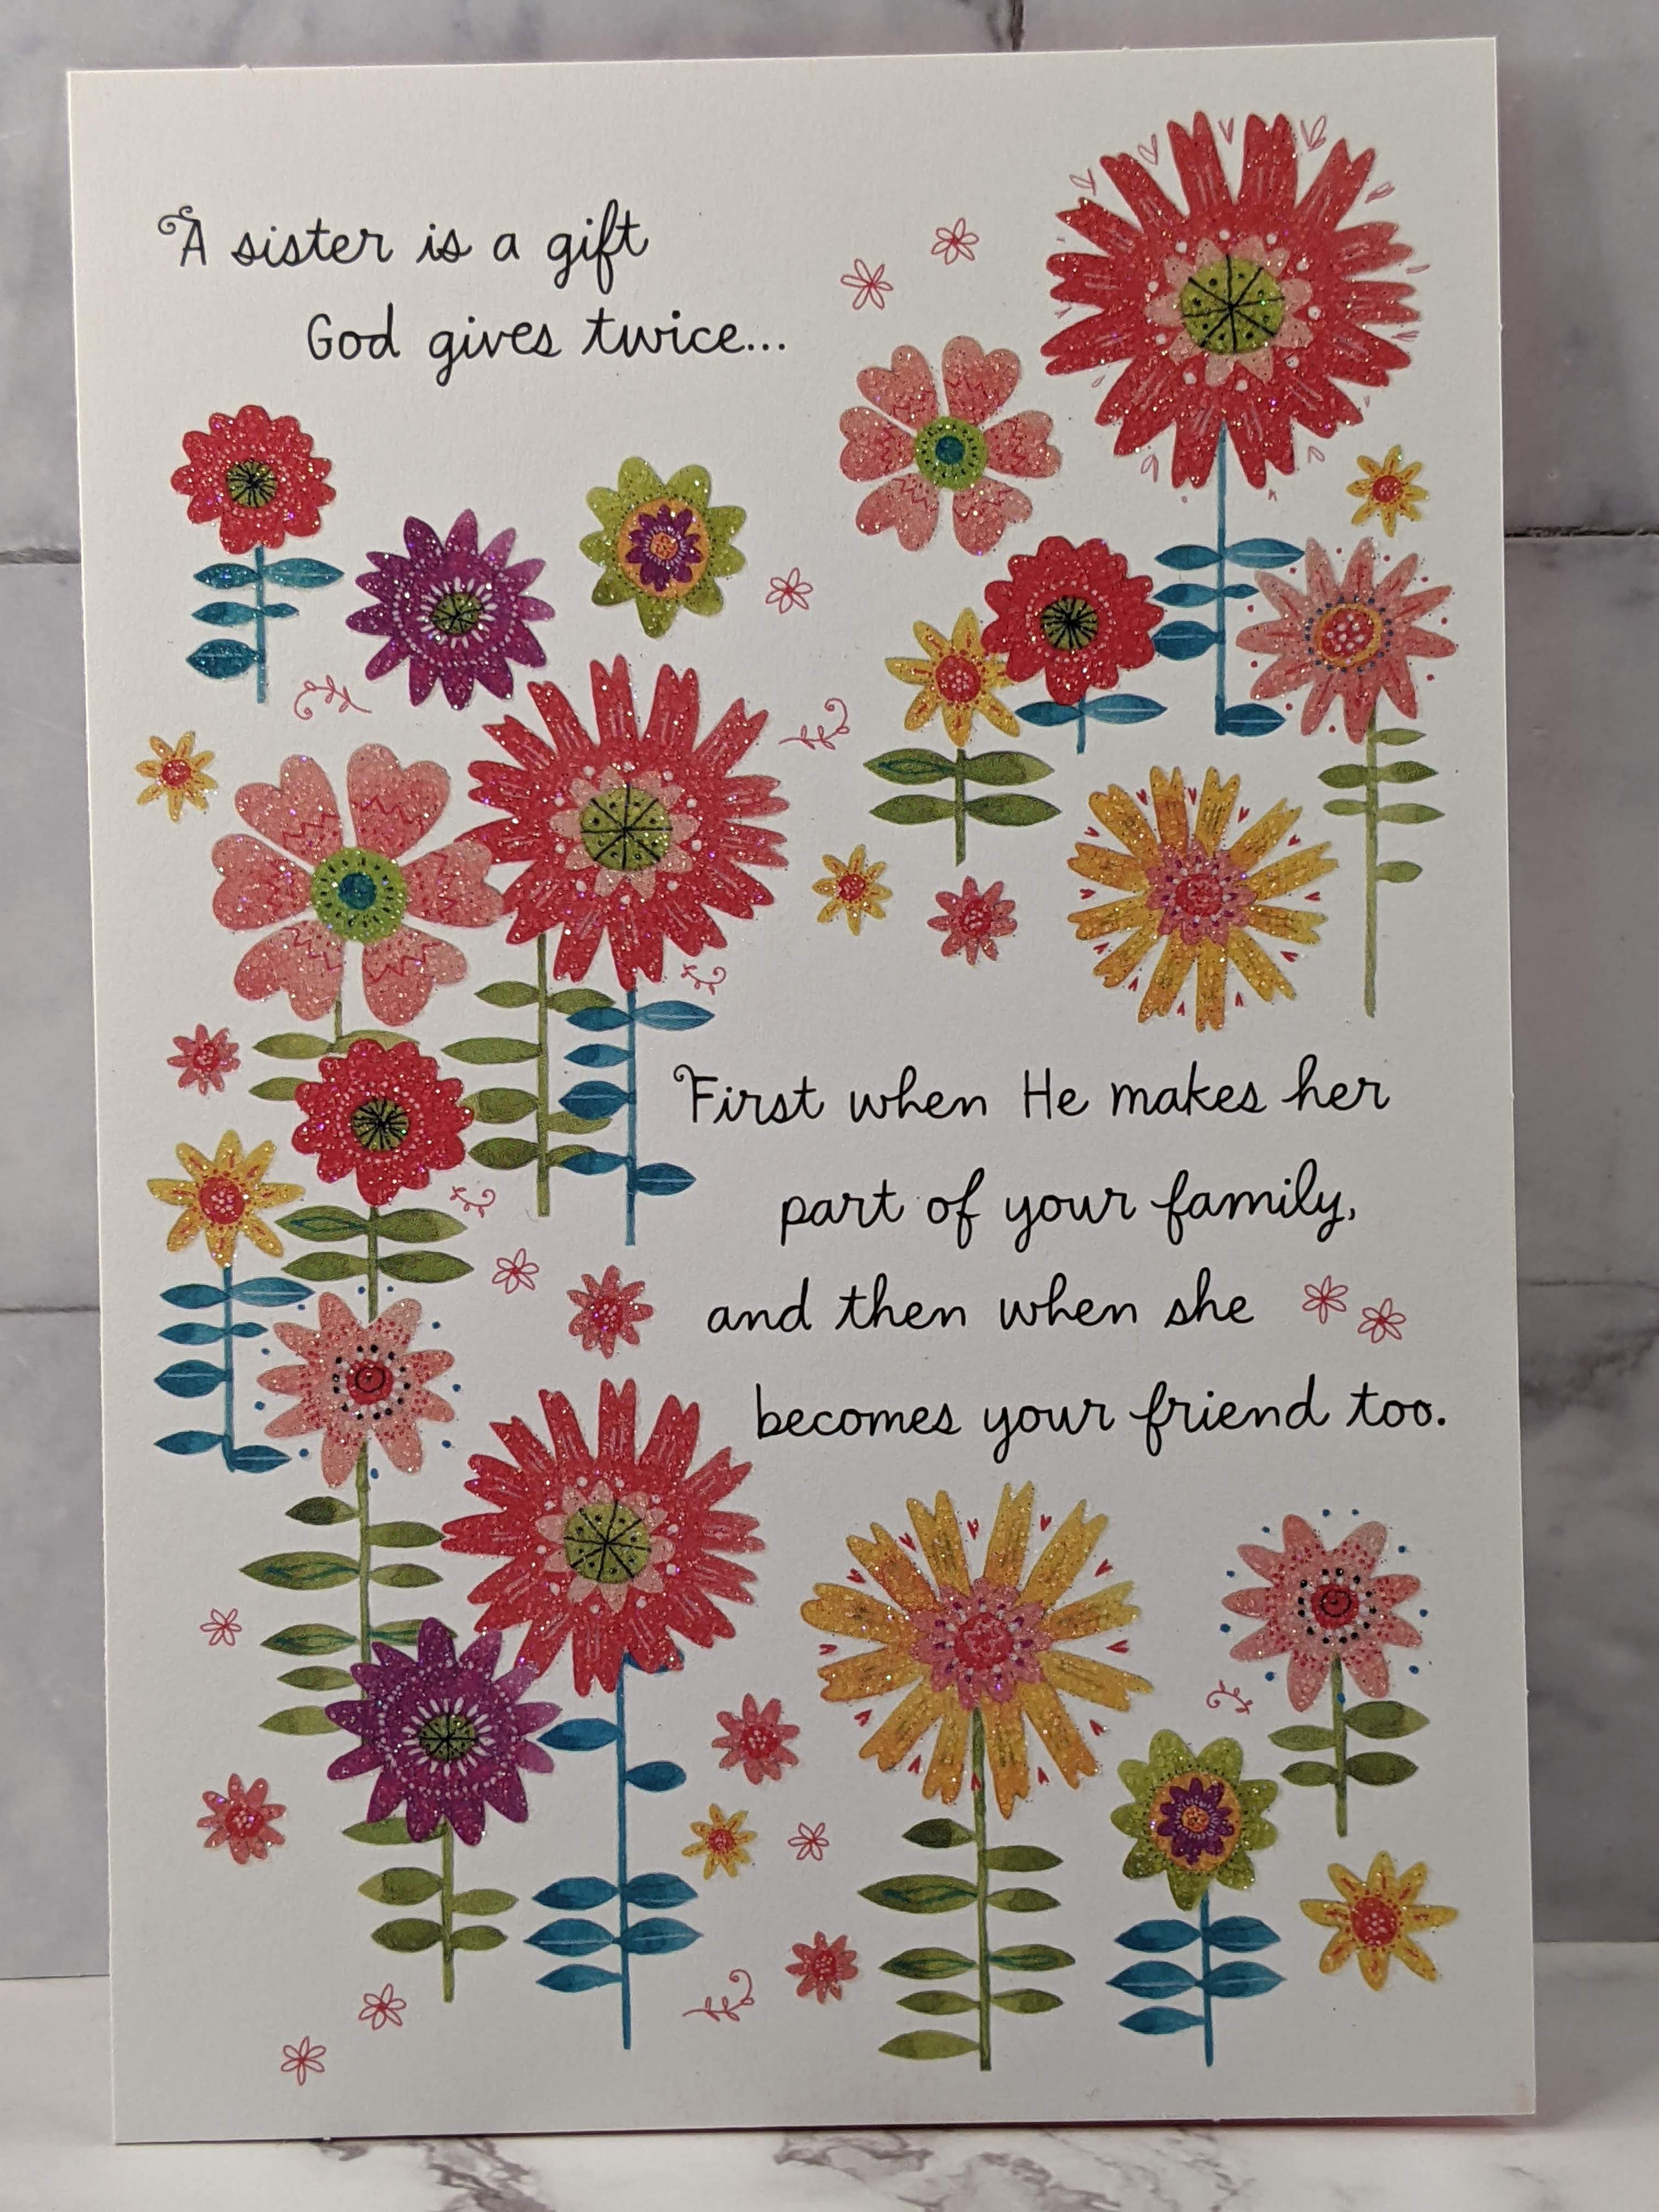 A sister is a gift
God gives twice...
First when He makes her
part of your family,
and then when she
becomes your friend too.